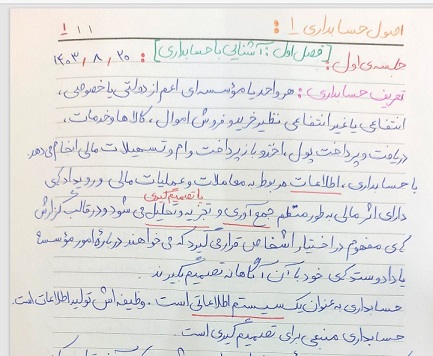 اصول حسابداری ۱ :
۱ ۱ ۱
[فصل اول : آشنایی با حسابداری]
جلسه‌ی اول : ۲۰ / ۸ / ۱۴۰۳
تعریف حسابداری : هر واحد یا مؤسسه‌ای اعم از دولتی یا خصوصی ،
انتفاعی یا غیر انتفاعی نظیر خرید و فروش اموال ، کالاها و خدمات ،
دریافت و پرداخت پول ، اخذ و باز پرداخت وام و تسهیلات مالی انجام می‌دهد.
با حسابداری ، اطلاعات مربوط به معاملات و عملیات مالی و رویدادهای
یا تصمیم‌گیری
دارای اثر مالی به طور منظم جمع آوری و تجزیه و تحلیل می شود و در قالب گزارش
های مفهوم در اختیار اشخاص قرار می گیرد که می خواهند درباره امور مؤسسه
یا داد و ستدهای خود با آن آگاهانه تصمیم بگیرند .
حسابداری به عنوان یک سیستم اطلاعاتی است . وظیفه اش تولید اطلاعات است.
حسابداری منبعی برای تصمیم گیری است.